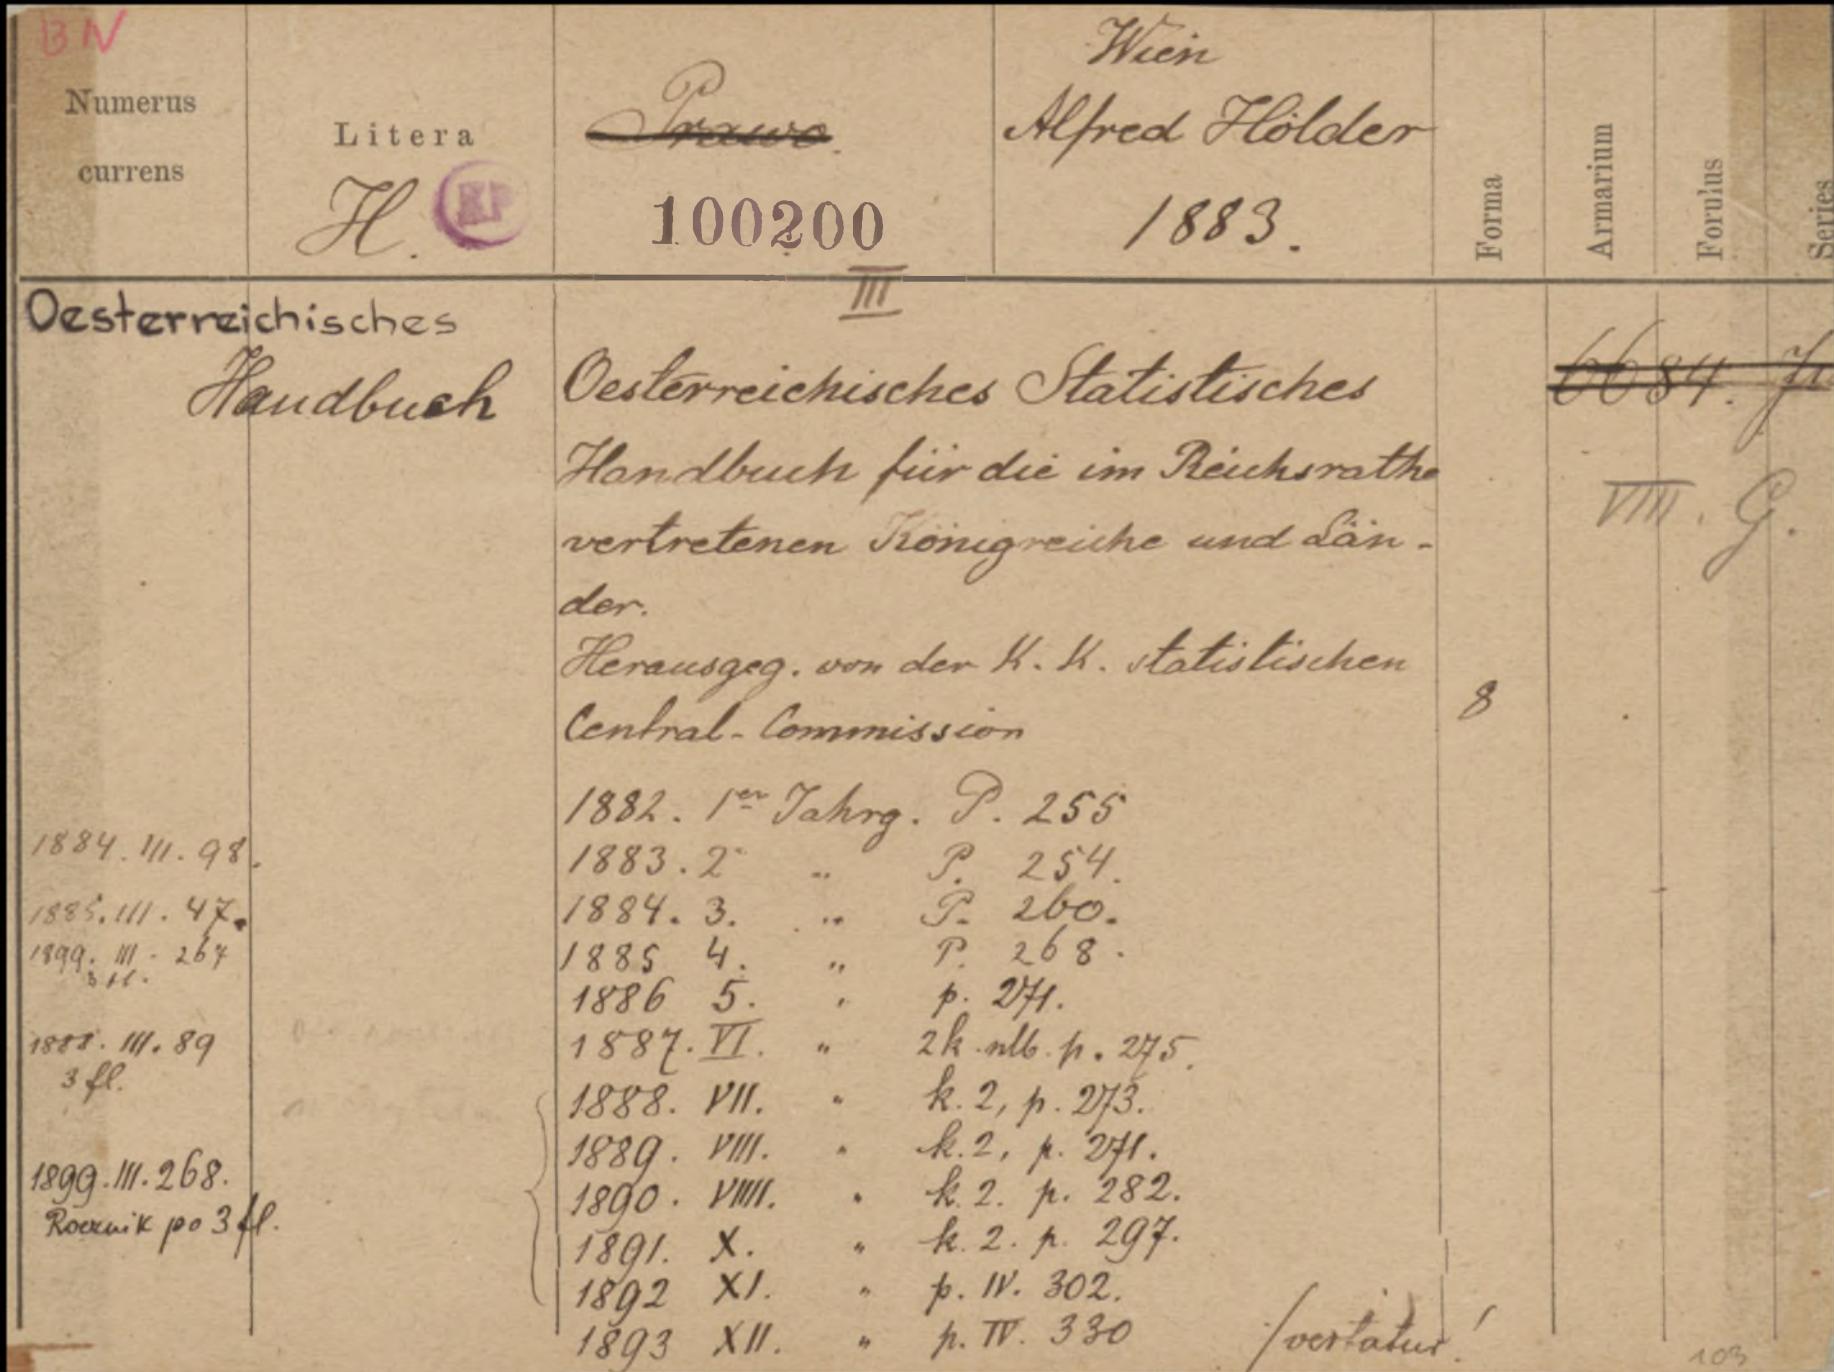 BN
Numerus
currens
Litera
H.
Prawo.
100200
III
Wien
Alfred Hölder
1883.
Forma
Armarium
Forulus
Series
Oesterreichisches
Handbuch
Oesterreichisches Statistisches
Handbuch für die im Reichsrathe
vertretenen Königreiche und Län-
der.
Herausgeg. von der K. K. statistischen
Central-Commission
8
6684.
VIII. G.
1882. 1er Jahrg. P. 255
1883. 2 „ P. 254.
1884. 3. „ P. 260.
1885 4. „ P. 268.
1886 5. „ p. 271.
1887. VI. „ 2k. nlb. p. 275.
1888. VII. „ k. 2, p. 273.
1889. VIII. „ k. 2, p. 271.
1890. VIIII. „ k. 2. p. 282.
1891. X. „ k. 2. p. 297.
1892 XI. „ p. IV. 302.
1893 XII. „ p. IV. 330
/vertatur!
1884. III. 98.
1885. III. 47.
1899. III. 267
3 fl.
1888. III. 89
3 fl.
1899. III. 268.
Rocznik po 3 fl.
103